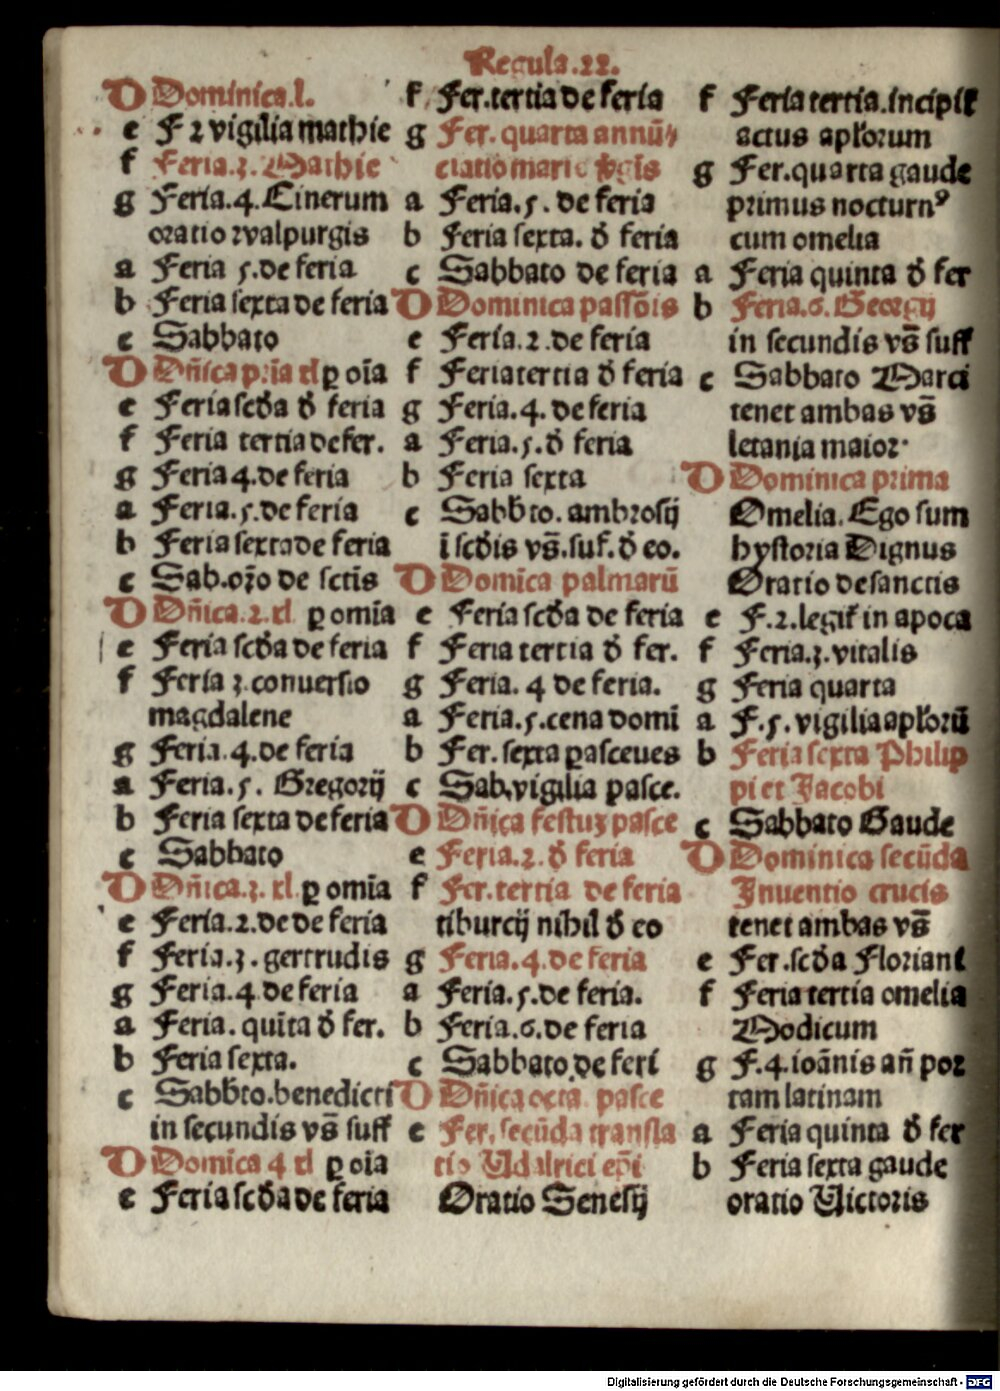 Regula.22.
D Dominica.l.
e F 2 vigilia mathie
f Feria.3. Mathie
g Feria.4. Cinerum
oratio walpurgis
a Feria 5.de feria
b Feria sexta de feria
c Sabbato
D Dñica p:ia rl ꝑ oīa
e Feria scďa ď feria
f Feria tertia de fer.
g Feria 4.de feria
a Feria.5.de feria
b Feria sexta de feria
c Sab.ořo de sctīs
D Dñica.2.rl ꝑ omīa
e Feria scďa de feria
f Feria 3.conuersio
magdalene
g Feria.4.de feria
a Feria.5. Gregorij
b Feria sexta de feria
c Sabbato
D Dñica.3.rl ꝑ omīa
e Feria.2.de de feria
f Feria.3.gertrudis
g Feria.4 de feria
a Feria.quīta ď fer.
b Feria sexta.
c Sabb̄to.benedicti
in secundis vs̄ suff
D Domīca 4 rl ꝑ oīa
e Feria scďa de feria
f Fer.tertia de feria
g Fer. quarta annū⸗
ciatio marie
a Feria.5. de feria
b Feria sexta. ď feria
c Sabbato de feria
D Dominica passōis
e Feria.2.de feria
f Feria tertia ď feria
g Feria.4.de feria
a Feria.5.ď feria
b Feria sexta
c Sabb̄to. ambrosij
ī scďis vs̄.suf.ď eo.
D Domīca palmarū
e Feria scďa de feria
f Feria tertia ď fer.
g Feria. 4 de feria.
a Feria.5.cena domī
b Fer.sexta pasceues
c Sab.vigilia pasce.
D Dñica festuꝫ pasce
e Feria.2.ď feria
f Fer.tertia de feria
tiburcij nihil ď eo
g Feria.4.de feria
a Feria.5.de feria.
b Feria.6.de feria
c Sabbato.de feri
D Dñica octa pasce
e Fer.secūda transla
tio Udalrici ep̄i
Oratio Senesij
f Feria tertia.incipit
actus apl̄orum
g Fer.quarta gaude
primus nocturnꝰ
cum omelia
a Feria quinta ď fer
b Feria.6. Georgij
in secundis vs̄ suff
c Sabbato Marci
tenet ambas vs̄
letania maior·
D Dominica prima
Omelia. Ego sum
hystoria Dignus
Oratio de sanctis
e F.2.legit̄ in apoca
f Feria.3.vitalis
g Feria quarta
a F.5.vigilia apl̄orū
b Feria sexta Philip
pi et Jacobi
c Sabbato Gaude
D Dominica secūda
Inuentio crucis
tenet ambas vs̄
e Fer.scďa Floriani
f Feria tertia omelia
Modicum
g F.4.ioānis añ por
tam latinam
a Feria quinta ď fer
b Feria sexta gaude
oratio Victoris
Digitalisierung gefördert durch die Deutsche Forschungsgemeinschaft - DFG